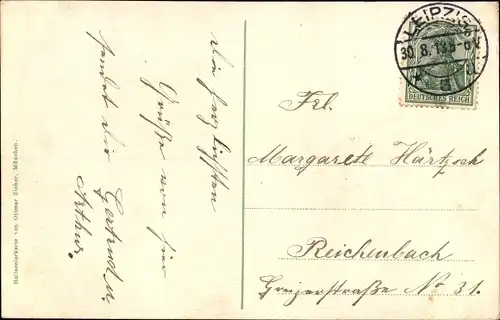 Die herzlichsten
Grüße von hier
sendet dir
Gertrud u.
Arthur.
Heliocolorkarte von Ottmar Zieher, München.
LEIPZIG
30.8.13.
DEUTSCHES REICH
Frl.
Margarete
Reichenbach
Greizerstraße No 31.